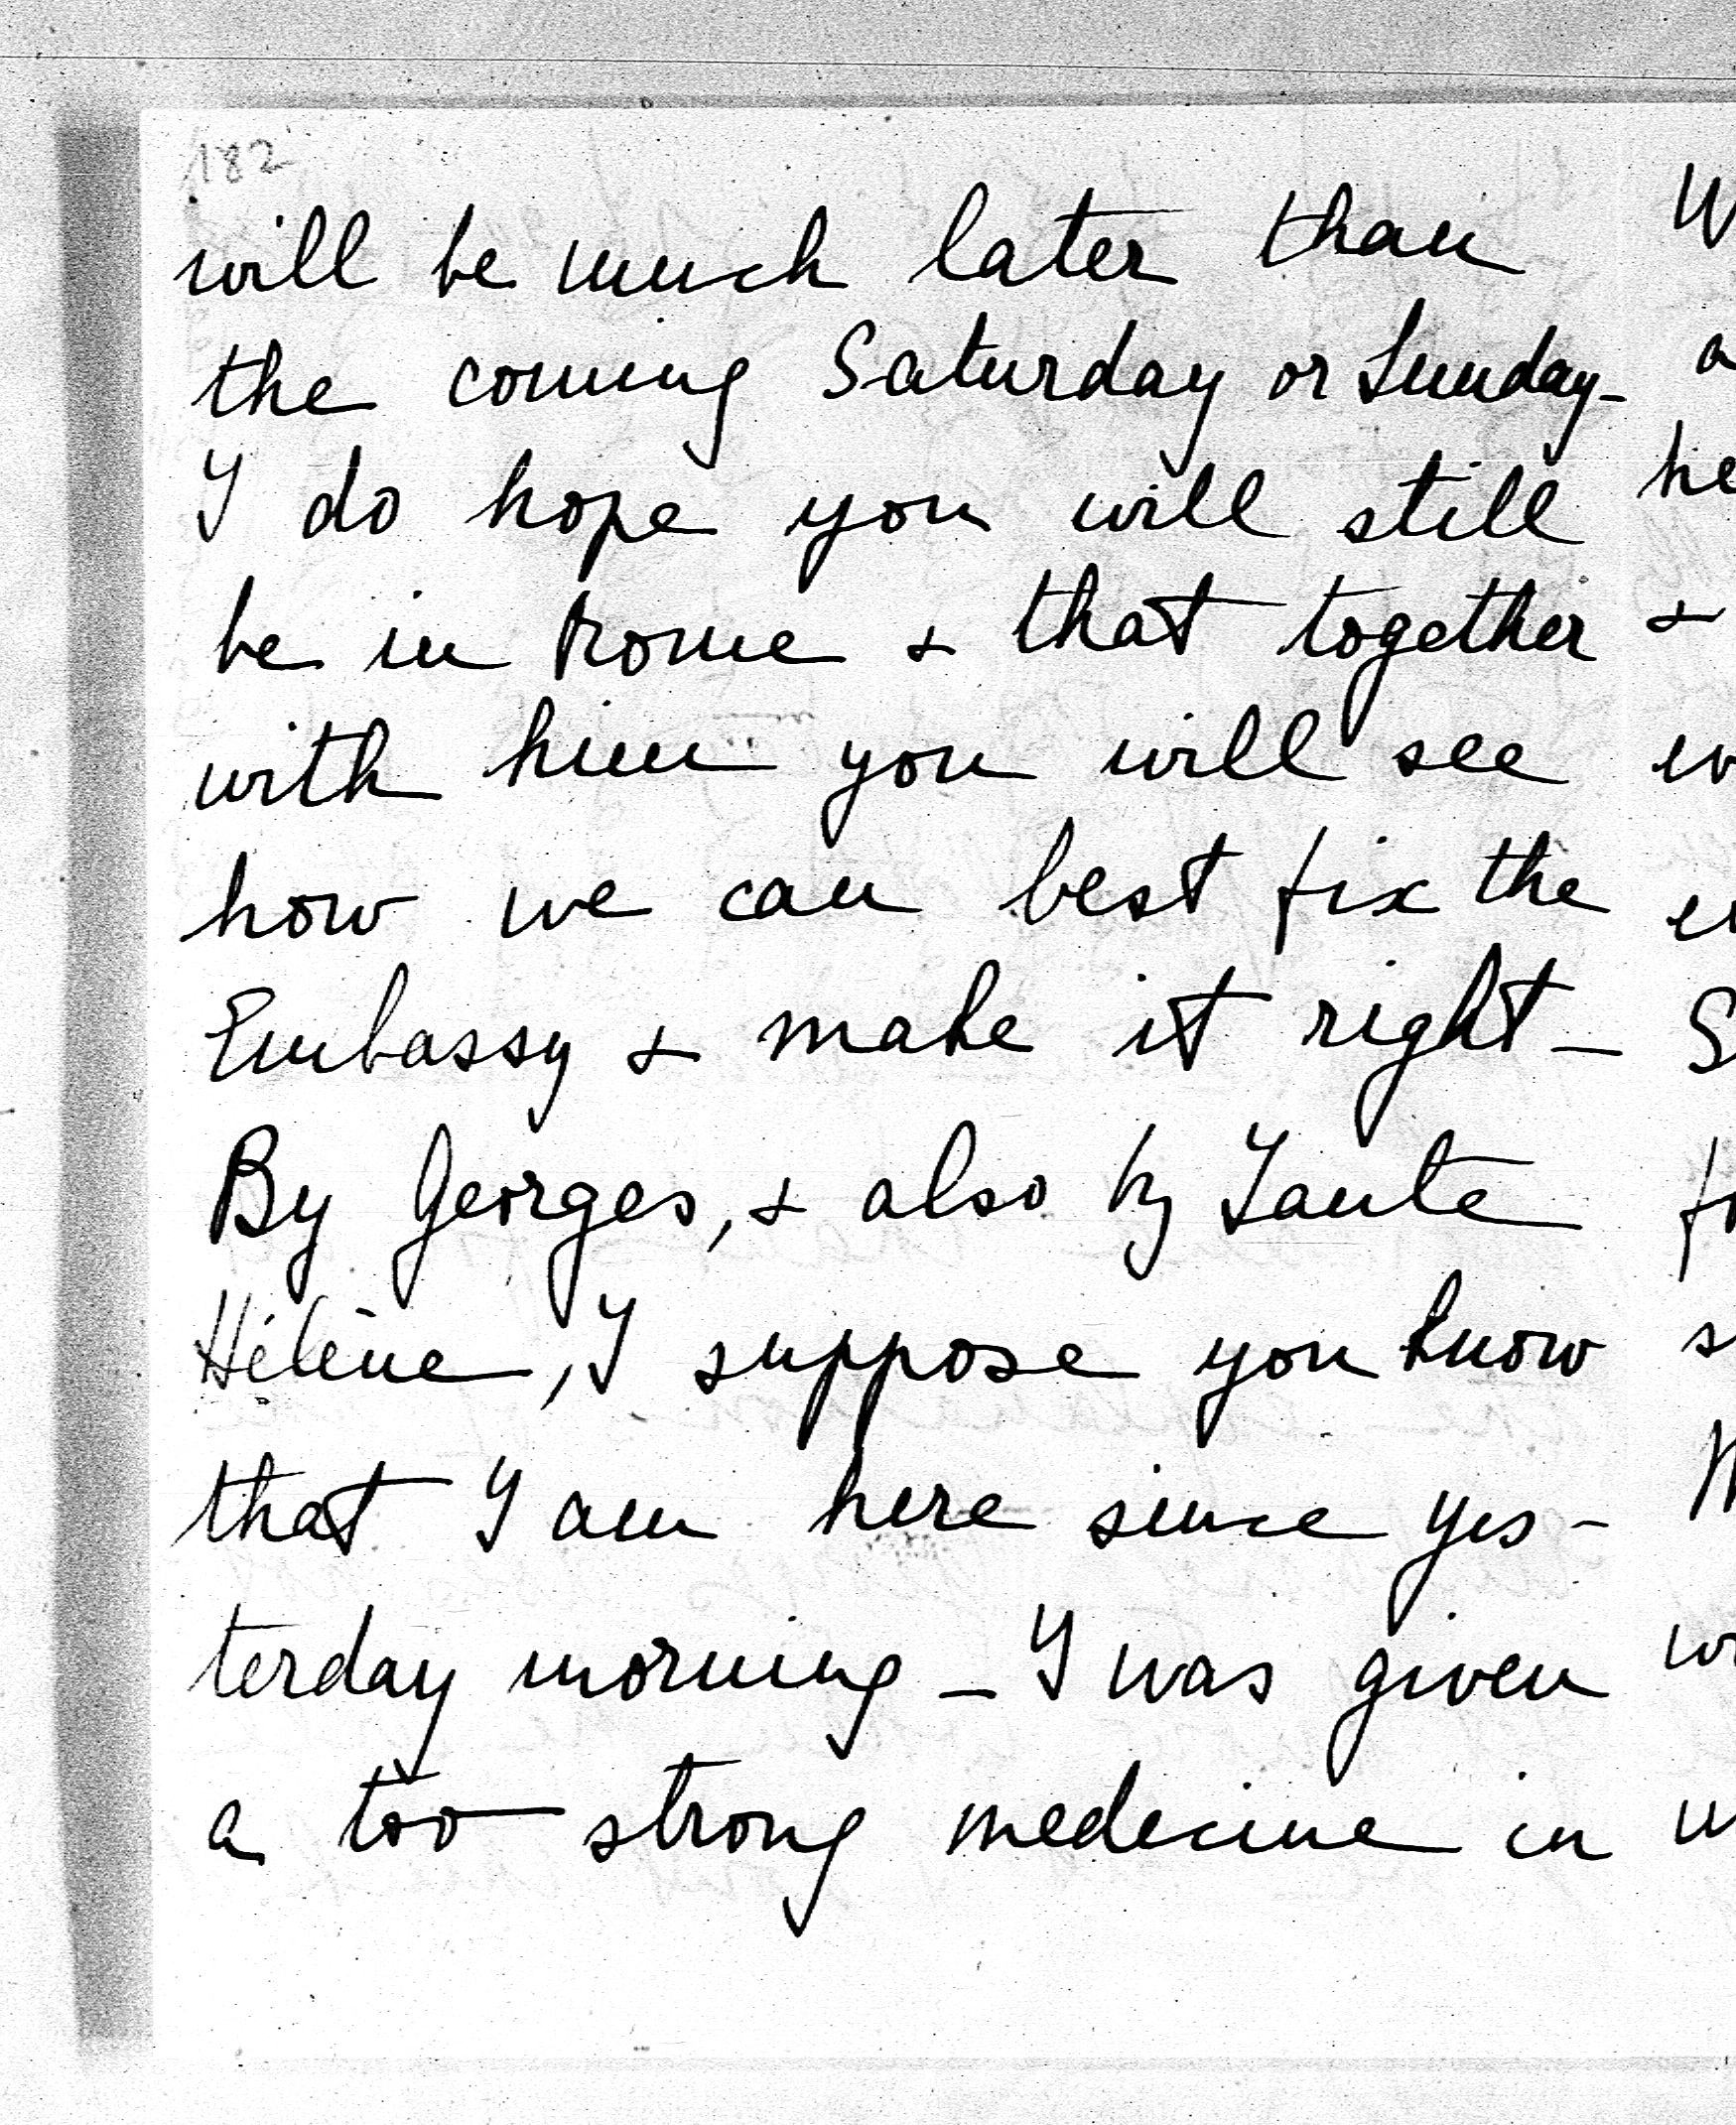 182
will be much later than
the coming Saturday or Sunday-
I do hope you will still
be in Rome & that together
with him you will see
how we can best fix the
Embassy & make it right-
By Georges, & also by Tante
Hélène, I suppose you know
that I am here since yes-
terday morning - I was given
a too strong medecine in